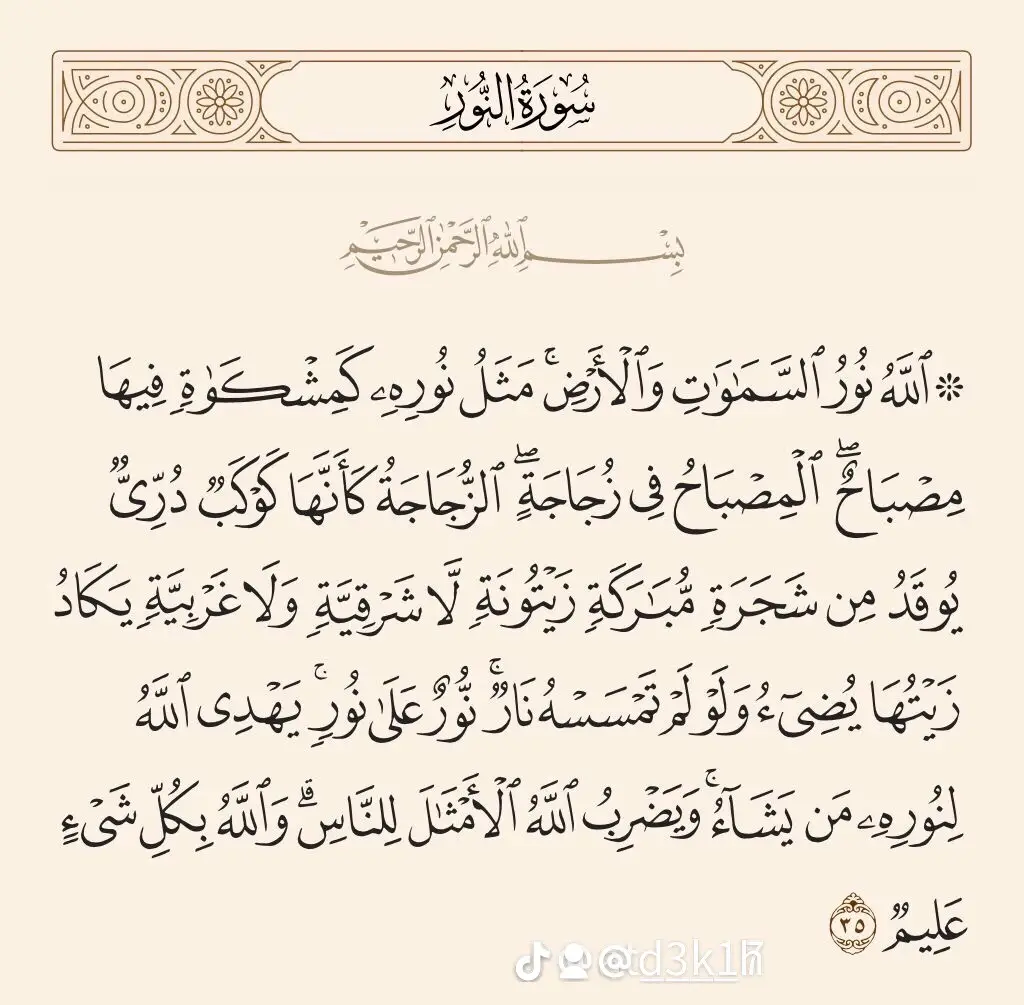 سُورَةُ النُّورِ
بِسْمِ ٱللَّهِ ٱلرَّحْمَٰنِ ٱلرَّحِيمِ
۞ ٱللَّهُ نُورُ ٱلسَّمَٰوَٰتِ وَٱلْأَرْضِۚ مَثَلُ نُورِهِۦ كَمِشْكَوٰةٖ فِيهَا
مِصْبَاحٌۖ ٱلْمِصْبَاحُ فِى زُجَاجَةٍۖ ٱلزُّجَاجَةُ كَأَنَّهَا كَوْكَبٞ دُرِّىّٞ
يُوقَدُ مِن شَجَرَةٖ مُّبَٰرَكَةٖ زَيْتُونَةٖ لَّا شَرْقِيَّةٖ وَلَا غَرْبِيَّةٖ يَكَادُ
زَيْتُهَا يُضِىٓءُ وَلَوْ لَمْ تَمْسَسْهُ نَارٞۚ نُّورٌ عَلَىٰ نُورٖۚ يَهْدِى ٱللَّهُ
لِنُورِهِۦ مَن يَشَآءُۚ وَيَضْرِبُ ٱللَّهُ ٱلْأَمْثَٰلَ لِلنَّاسِۗ وَٱللَّهُ بِكُلِّ شَىْءٍ
عَلِيمٞ ٣٥